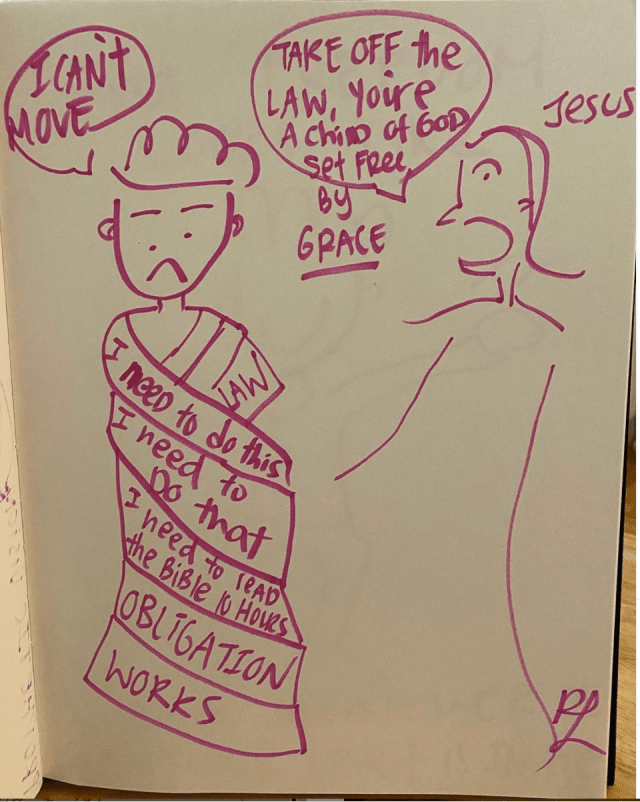 I CAN'T
MOVE
TAKE OFF the
LAW, You're
A Child of GOD
Set FREE
By
GRACE
Jesus
LAW
I NEED to do this
I need to
Do that
I need to reAD
the BiBle 10 HOURS
OBLIGATION
WORKS